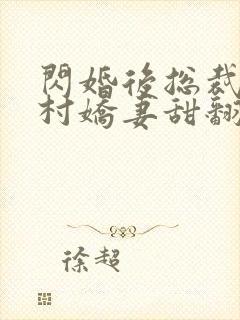 閃婚後總裁
村嬌妻甜翻
徐超